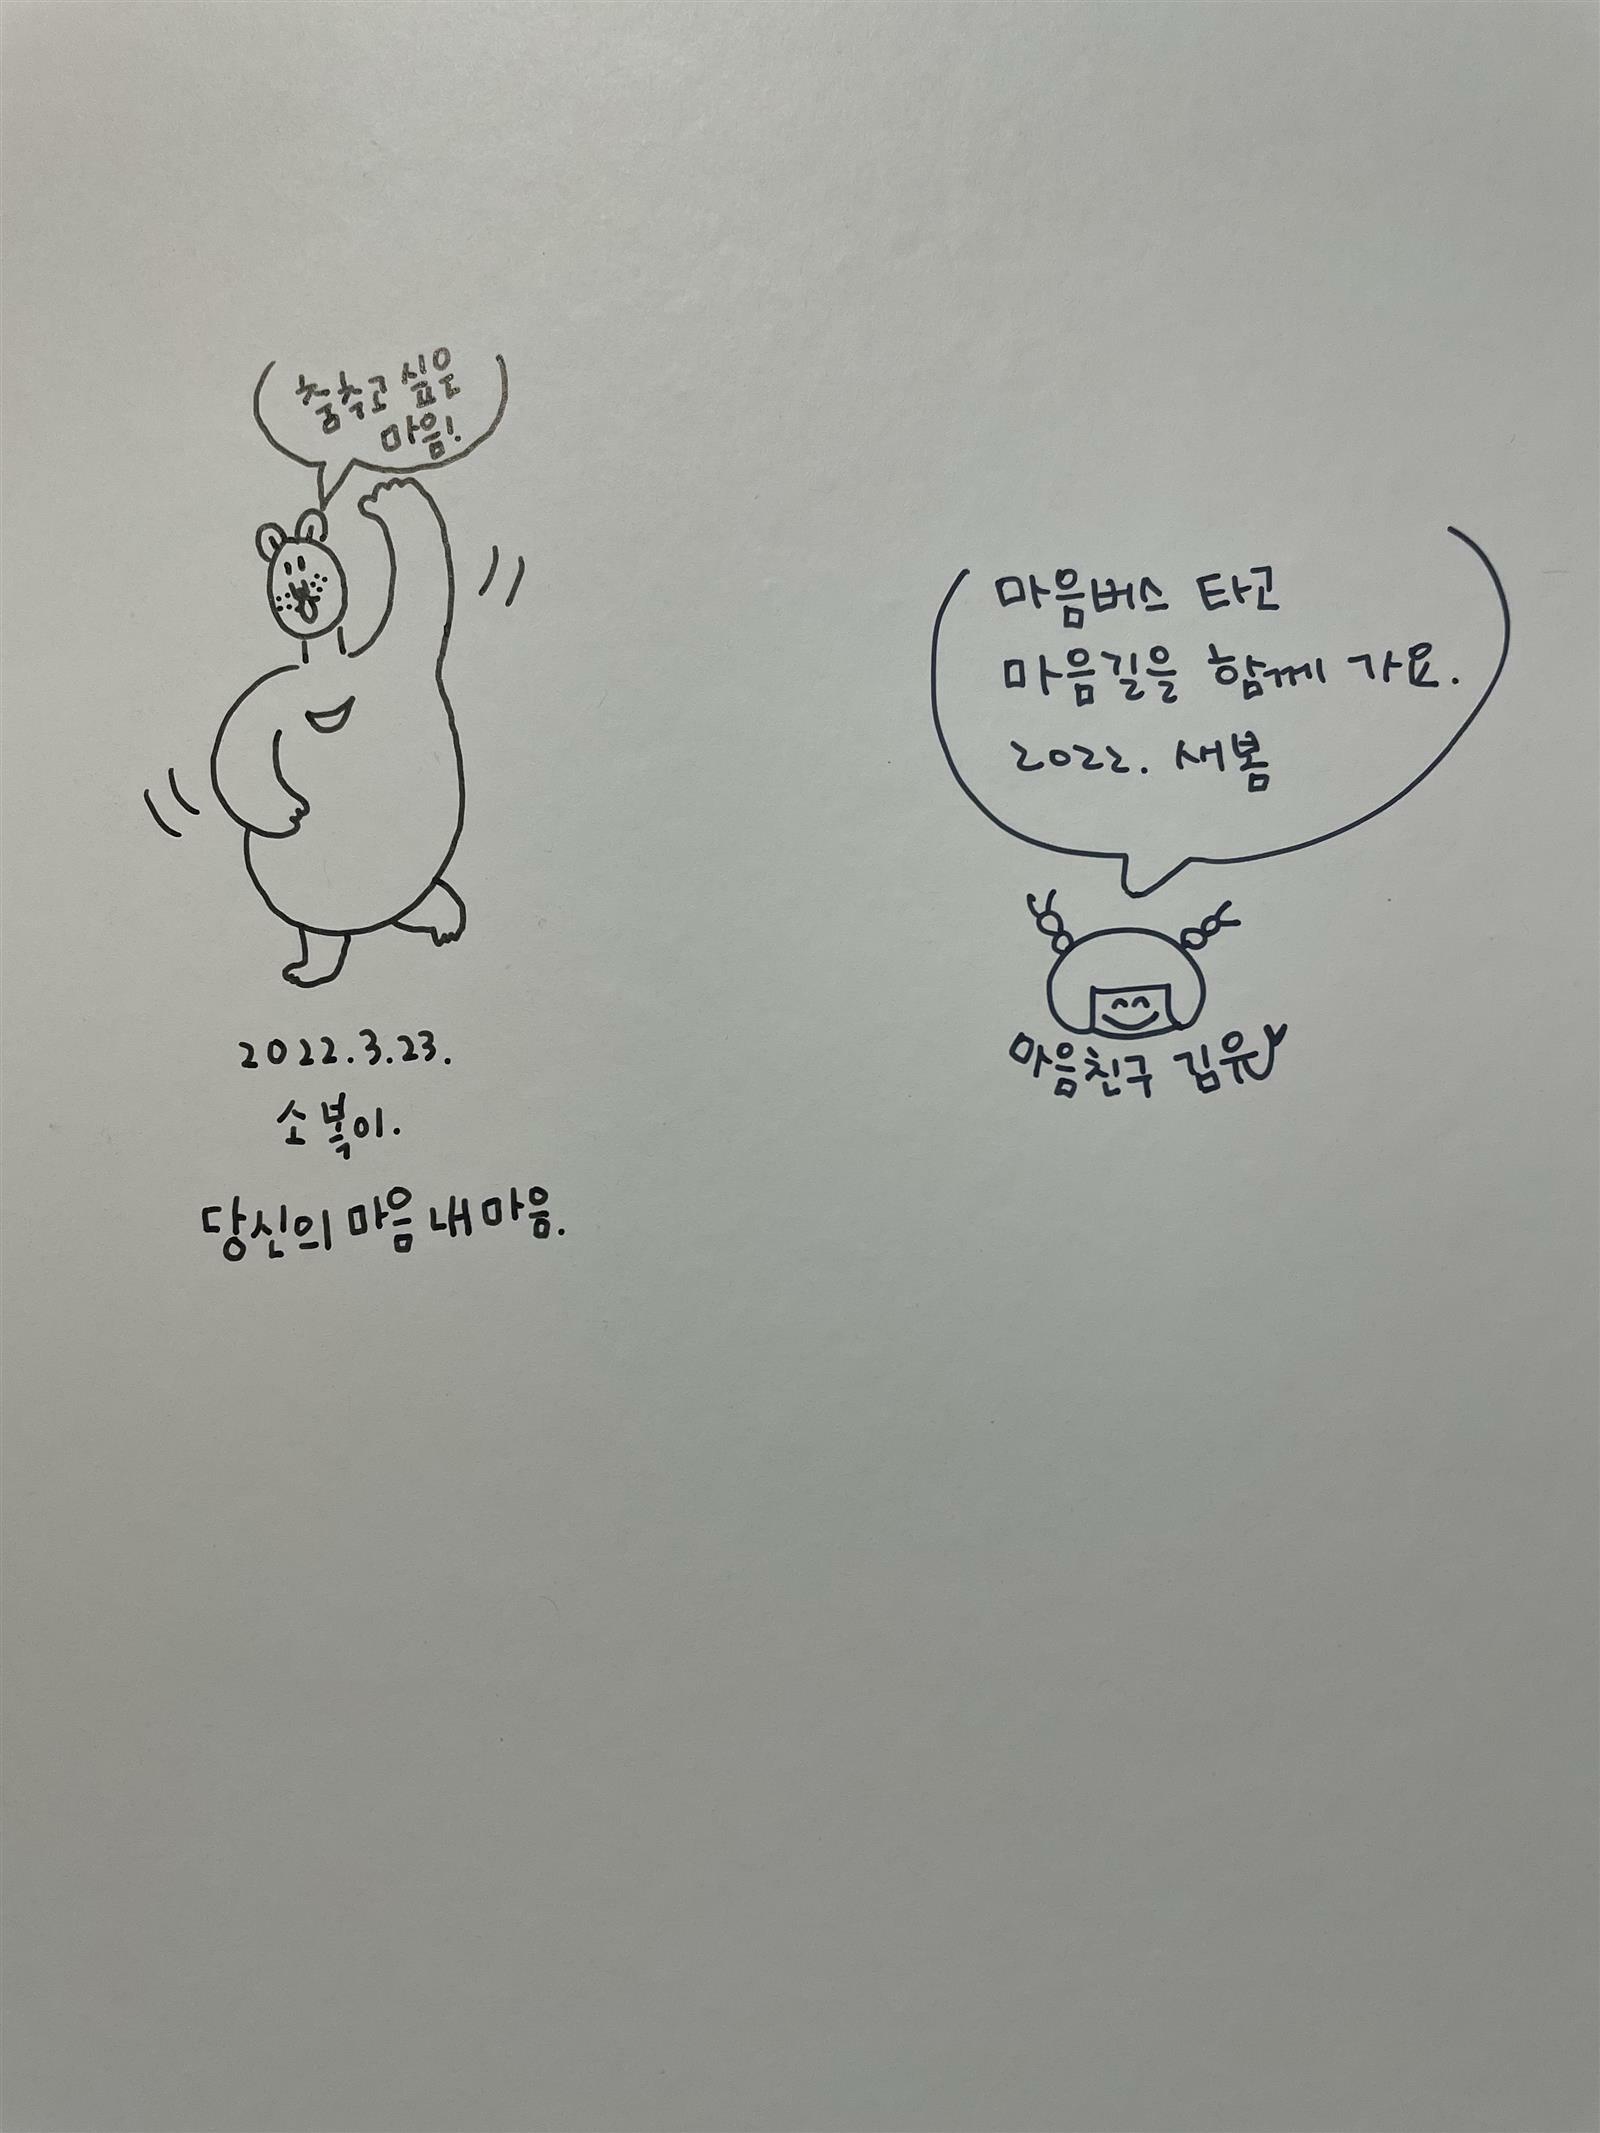 춤추고 싶은
마음!
2022.3.23.
소복이.
당신의 마음 내 마음.
마음버스 타고
마음길을 함께 가요.
2022. 새봄
마음친구 김유